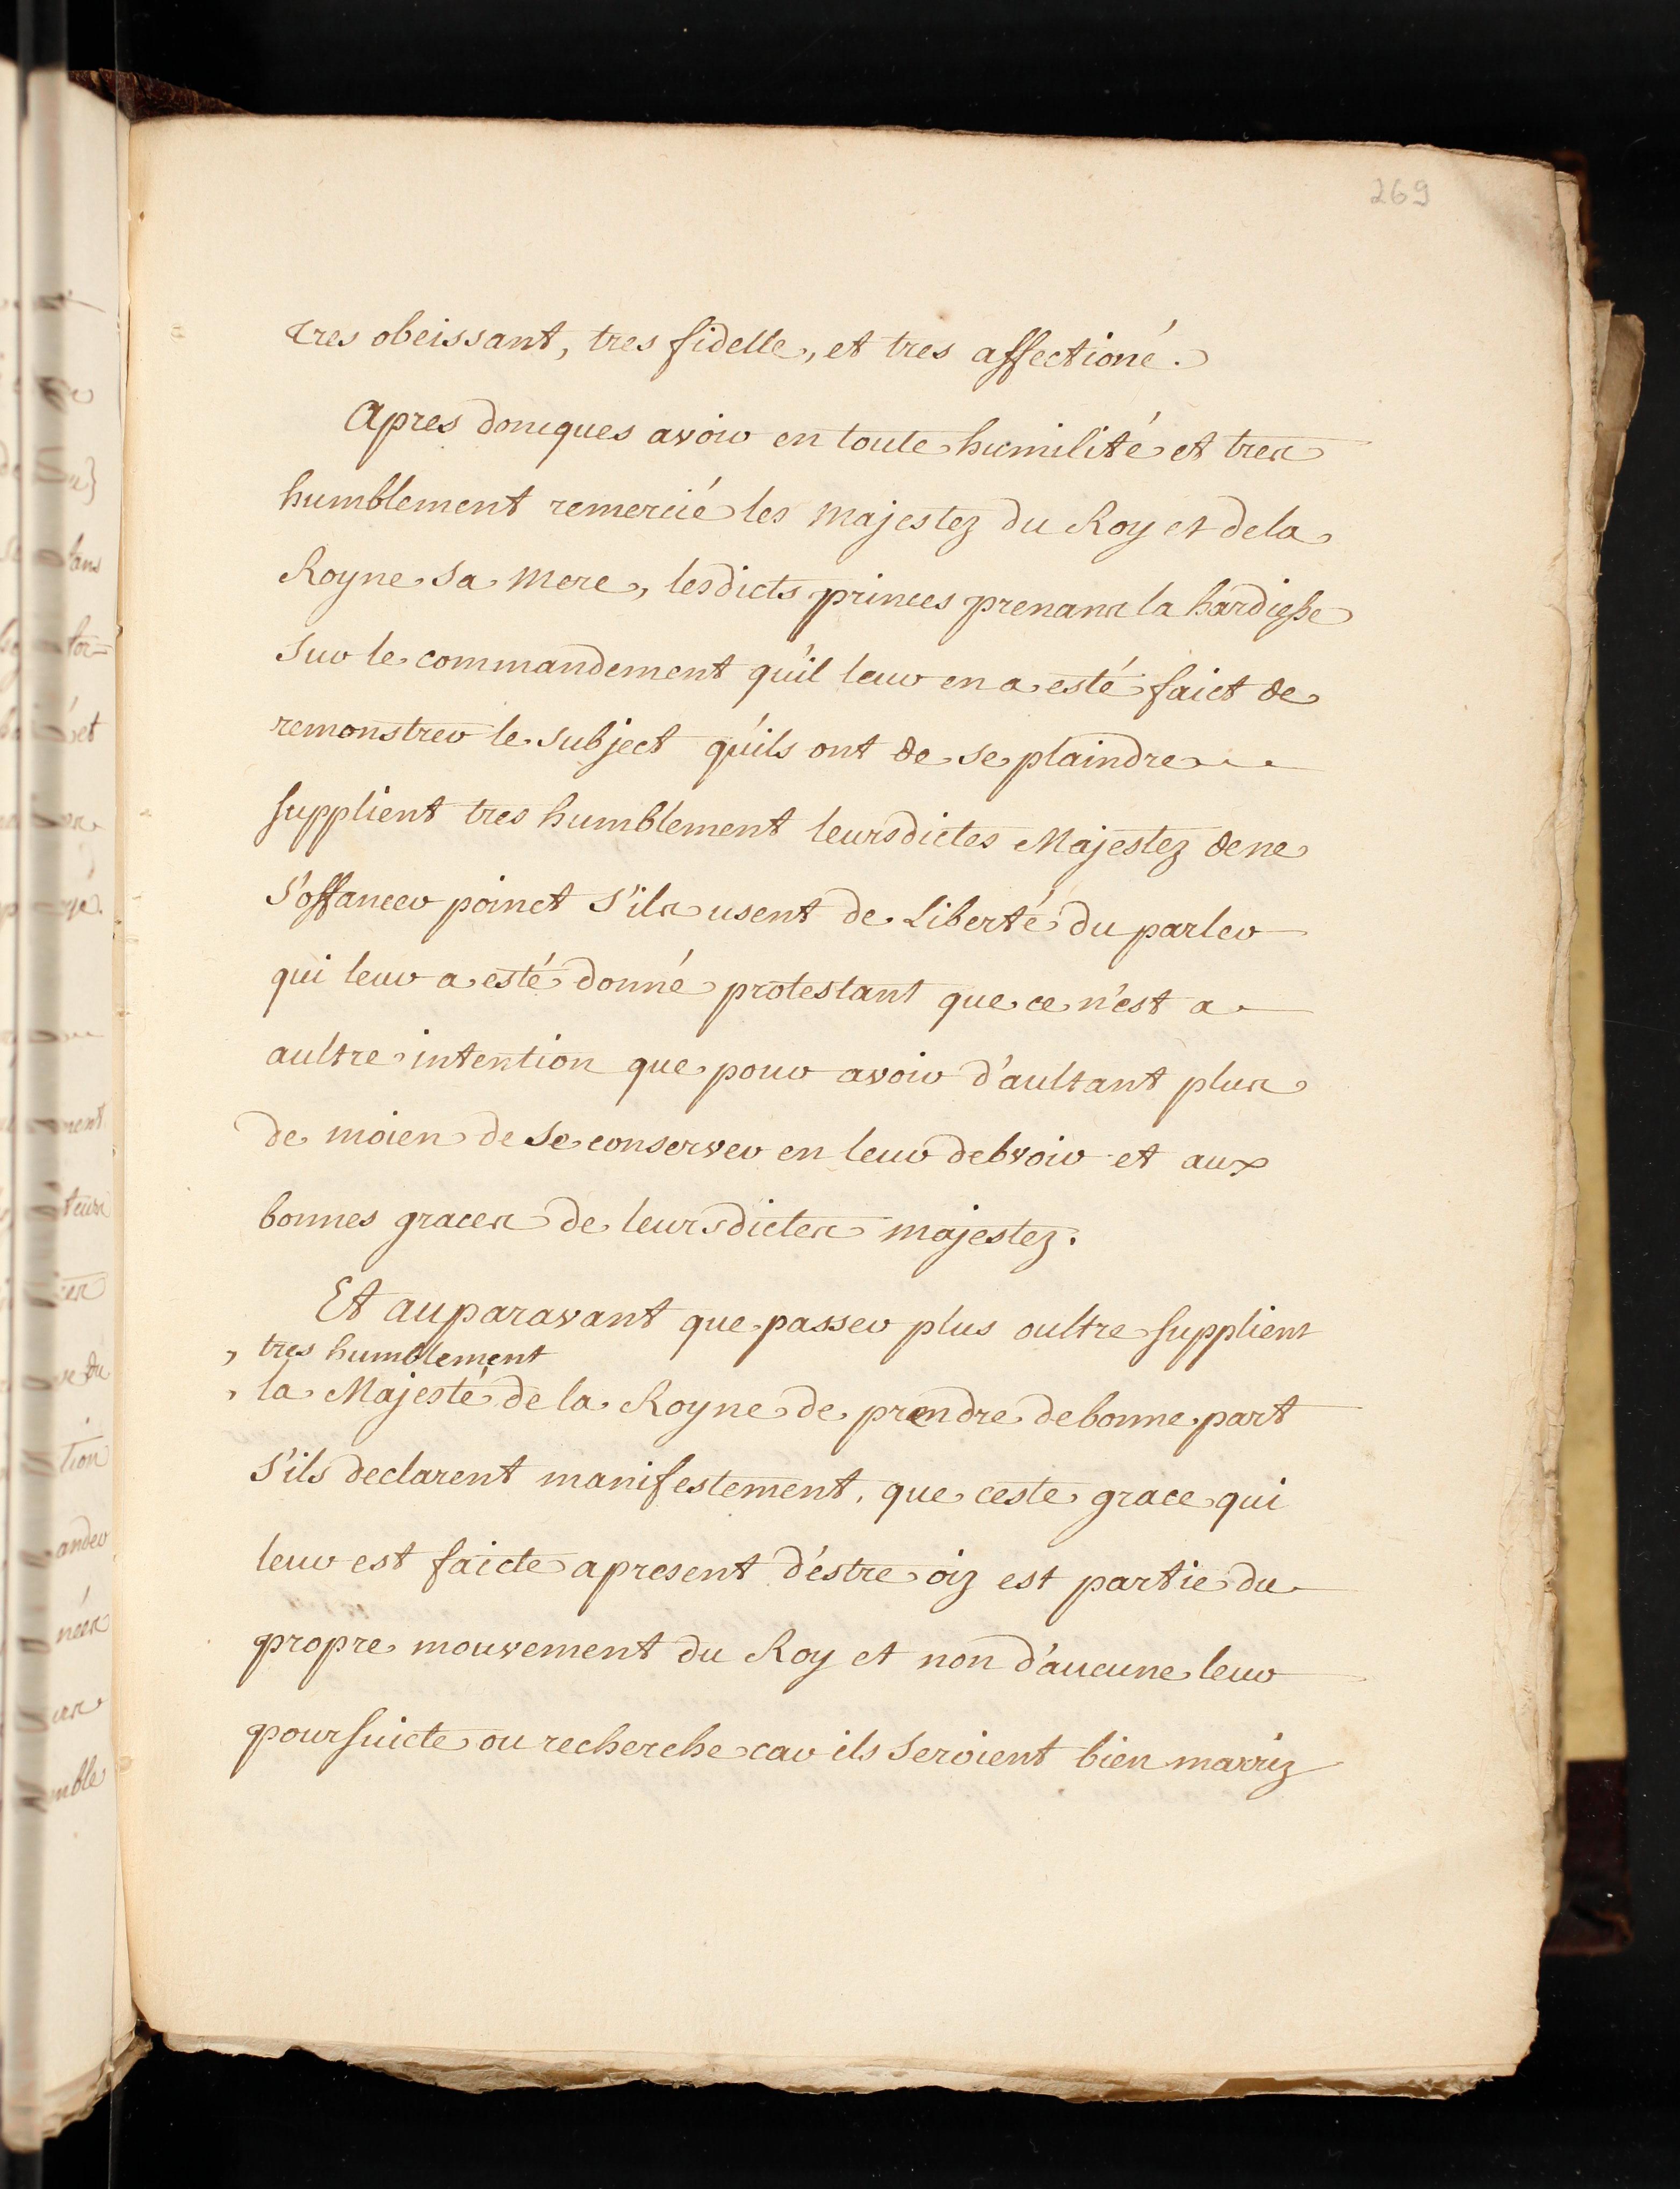 269
tres obeissant, tres fidelle, et tres affectioné.
Apres doncques avoir en toute humilité et tres
humblement remercié les majestez du Roy et dela
Royne sa mere, lesdicts princes prenans la hardiesse
sur le commandement qu'il leur en a esté faict de
remonstrer le subject qu'ils ont de se plaindre
supplient tres humblement leursdictes Majestez de ne
s'offancer poinct s'ils usent de liberté du parler
qui leur a esté donné protestant que ce n'est a
aultre intention que pour avoir d'aultant plus
de moien de se conserver en leur debvoir et aux
bonnes graces de leursdictes majestez.
Et auparavant que passer plus oultre supplient
, tres humblement
, la Majesté de la Royne de prendre de bonne part
s'ils declarent manifestement, que ceste grace qui
leur est faicte apresent d'estre oiz est partie du
propre mouvement du Roy et non d'aucune leur
poursuicte ou recherche car ils seroient bien marriz